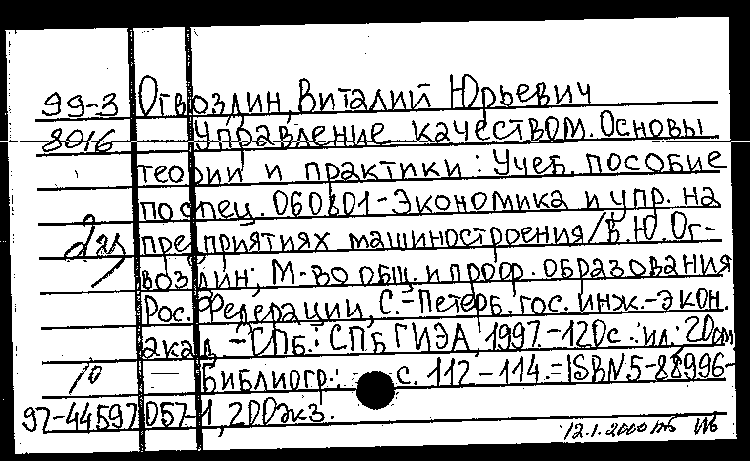 99-3 Огвоздин, Виталий Юрьевич
8016 Управление качеством. Основы
теории и практики: Учеб. пособие
по спец. 060801-Экономика и упр. на
2аз предприятиях машиностроения/В.Ю.Ог-
воздин; М-во общ. и проф. образования
Рос. Федерации, С.-Петерб. гос. инж.-экон.
акад. -СПб.: СПбГИЭА, 1997.-120с.:ил; 20см
10 Библиогр.: с. 112-114.=ISBN5-88996-
97-44597 057-1, 200экз.
12.1.2000